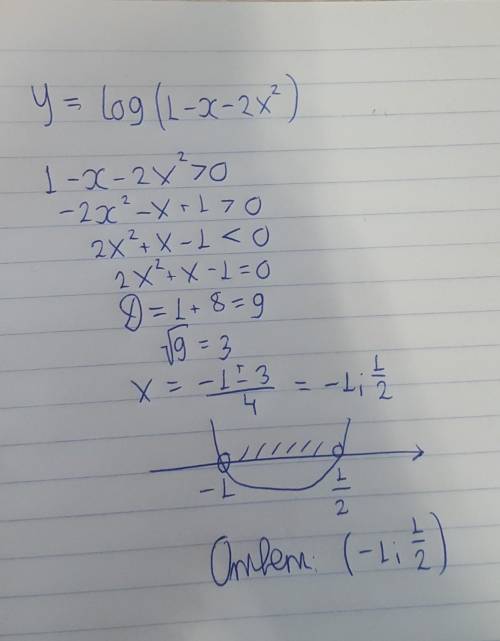 y = log(1-x-2x²)
1-x-2x²>0
-2x²-x+1>0
2x²+x-1<0
2x²+x-1=0
D=1+8=9
√9=3
x = (-1±3)/4 = -1; 1/2
-1 1/2
Ответ: (-1; 1/2)